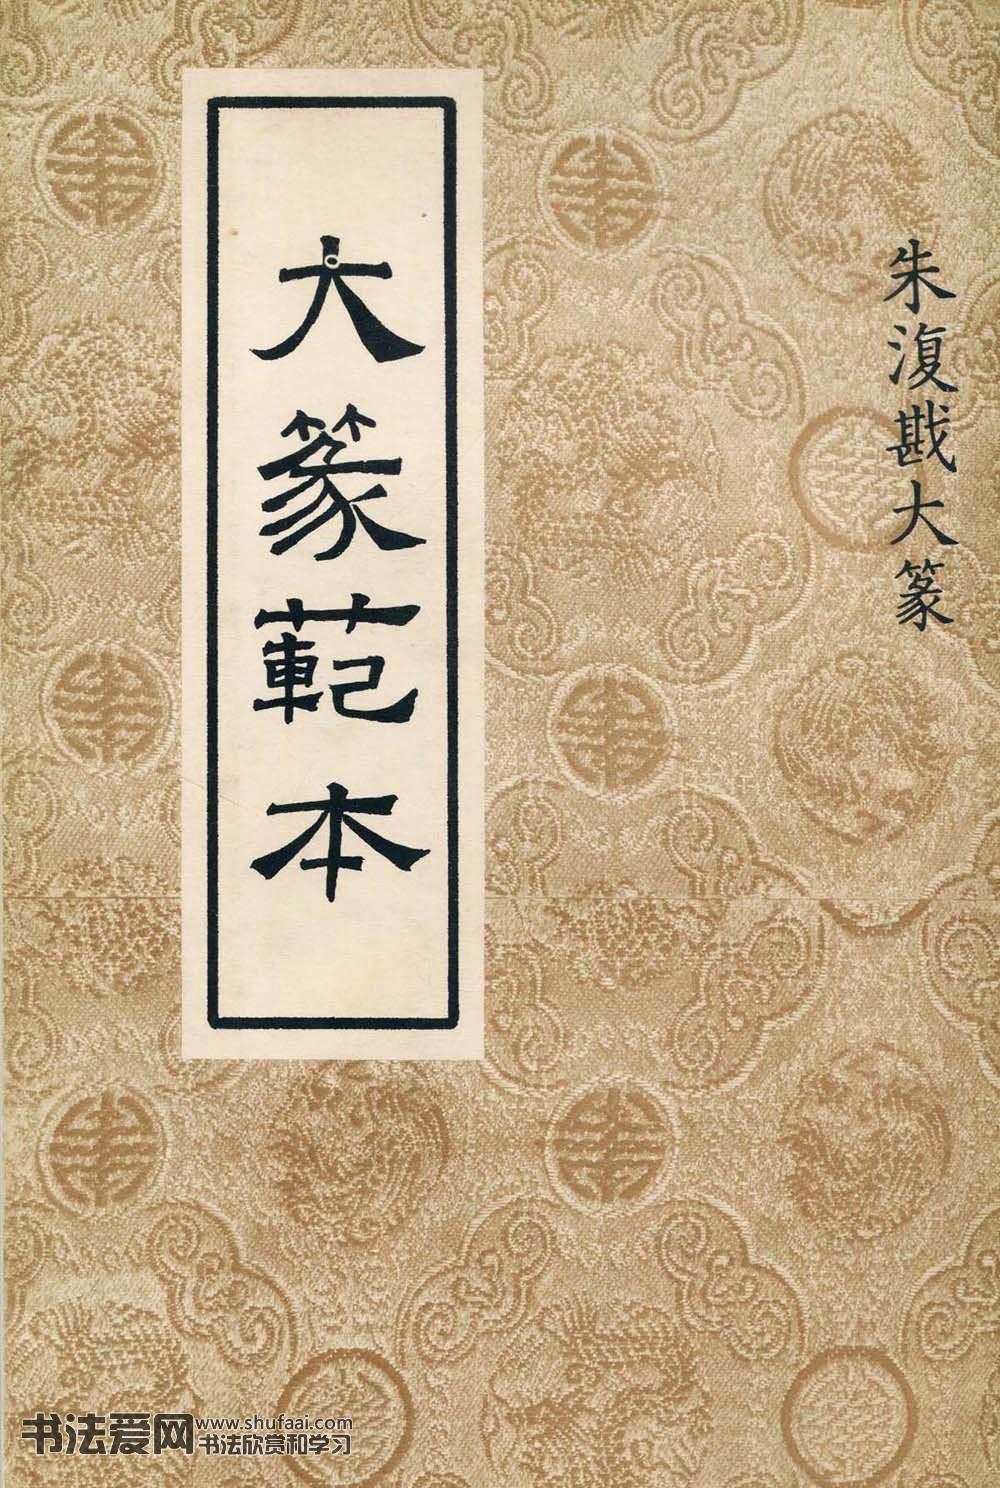 朱復戡大篆
大篆範本
书法爱网
www.shufaai.com
书法欣赏和学习